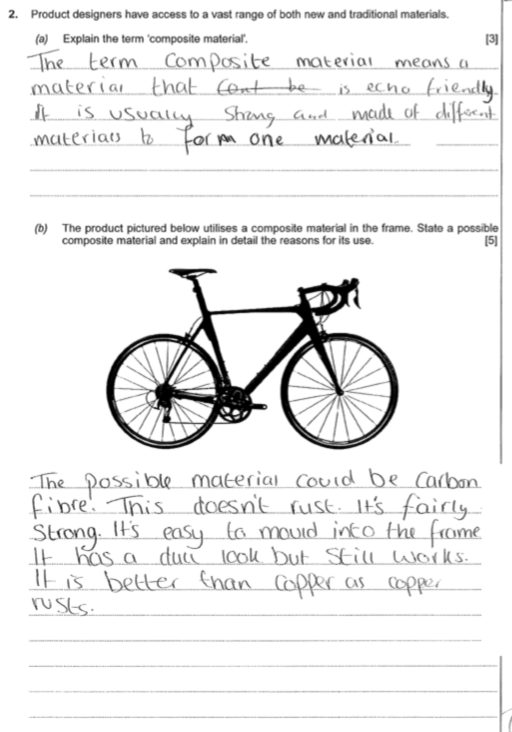 2. Product designers have access to a vast range of both new and traditional materials.
(a) Explain the term 'composite material'. [3]
The term composite material means a
material that cont be is echo friendly
it is usually strong and made of different
materials to form one material.
(b) The product pictured below utilises a composite material in the frame. State a possible
composite material and explain in detail the reasons for its use. [5]
The possible material could be Carbon
fibre. This doesn't rust. It's fairly
Strong. It's easy to mould into the frame
It has a dull look but still works.
It is better than copper as copper
rusts.